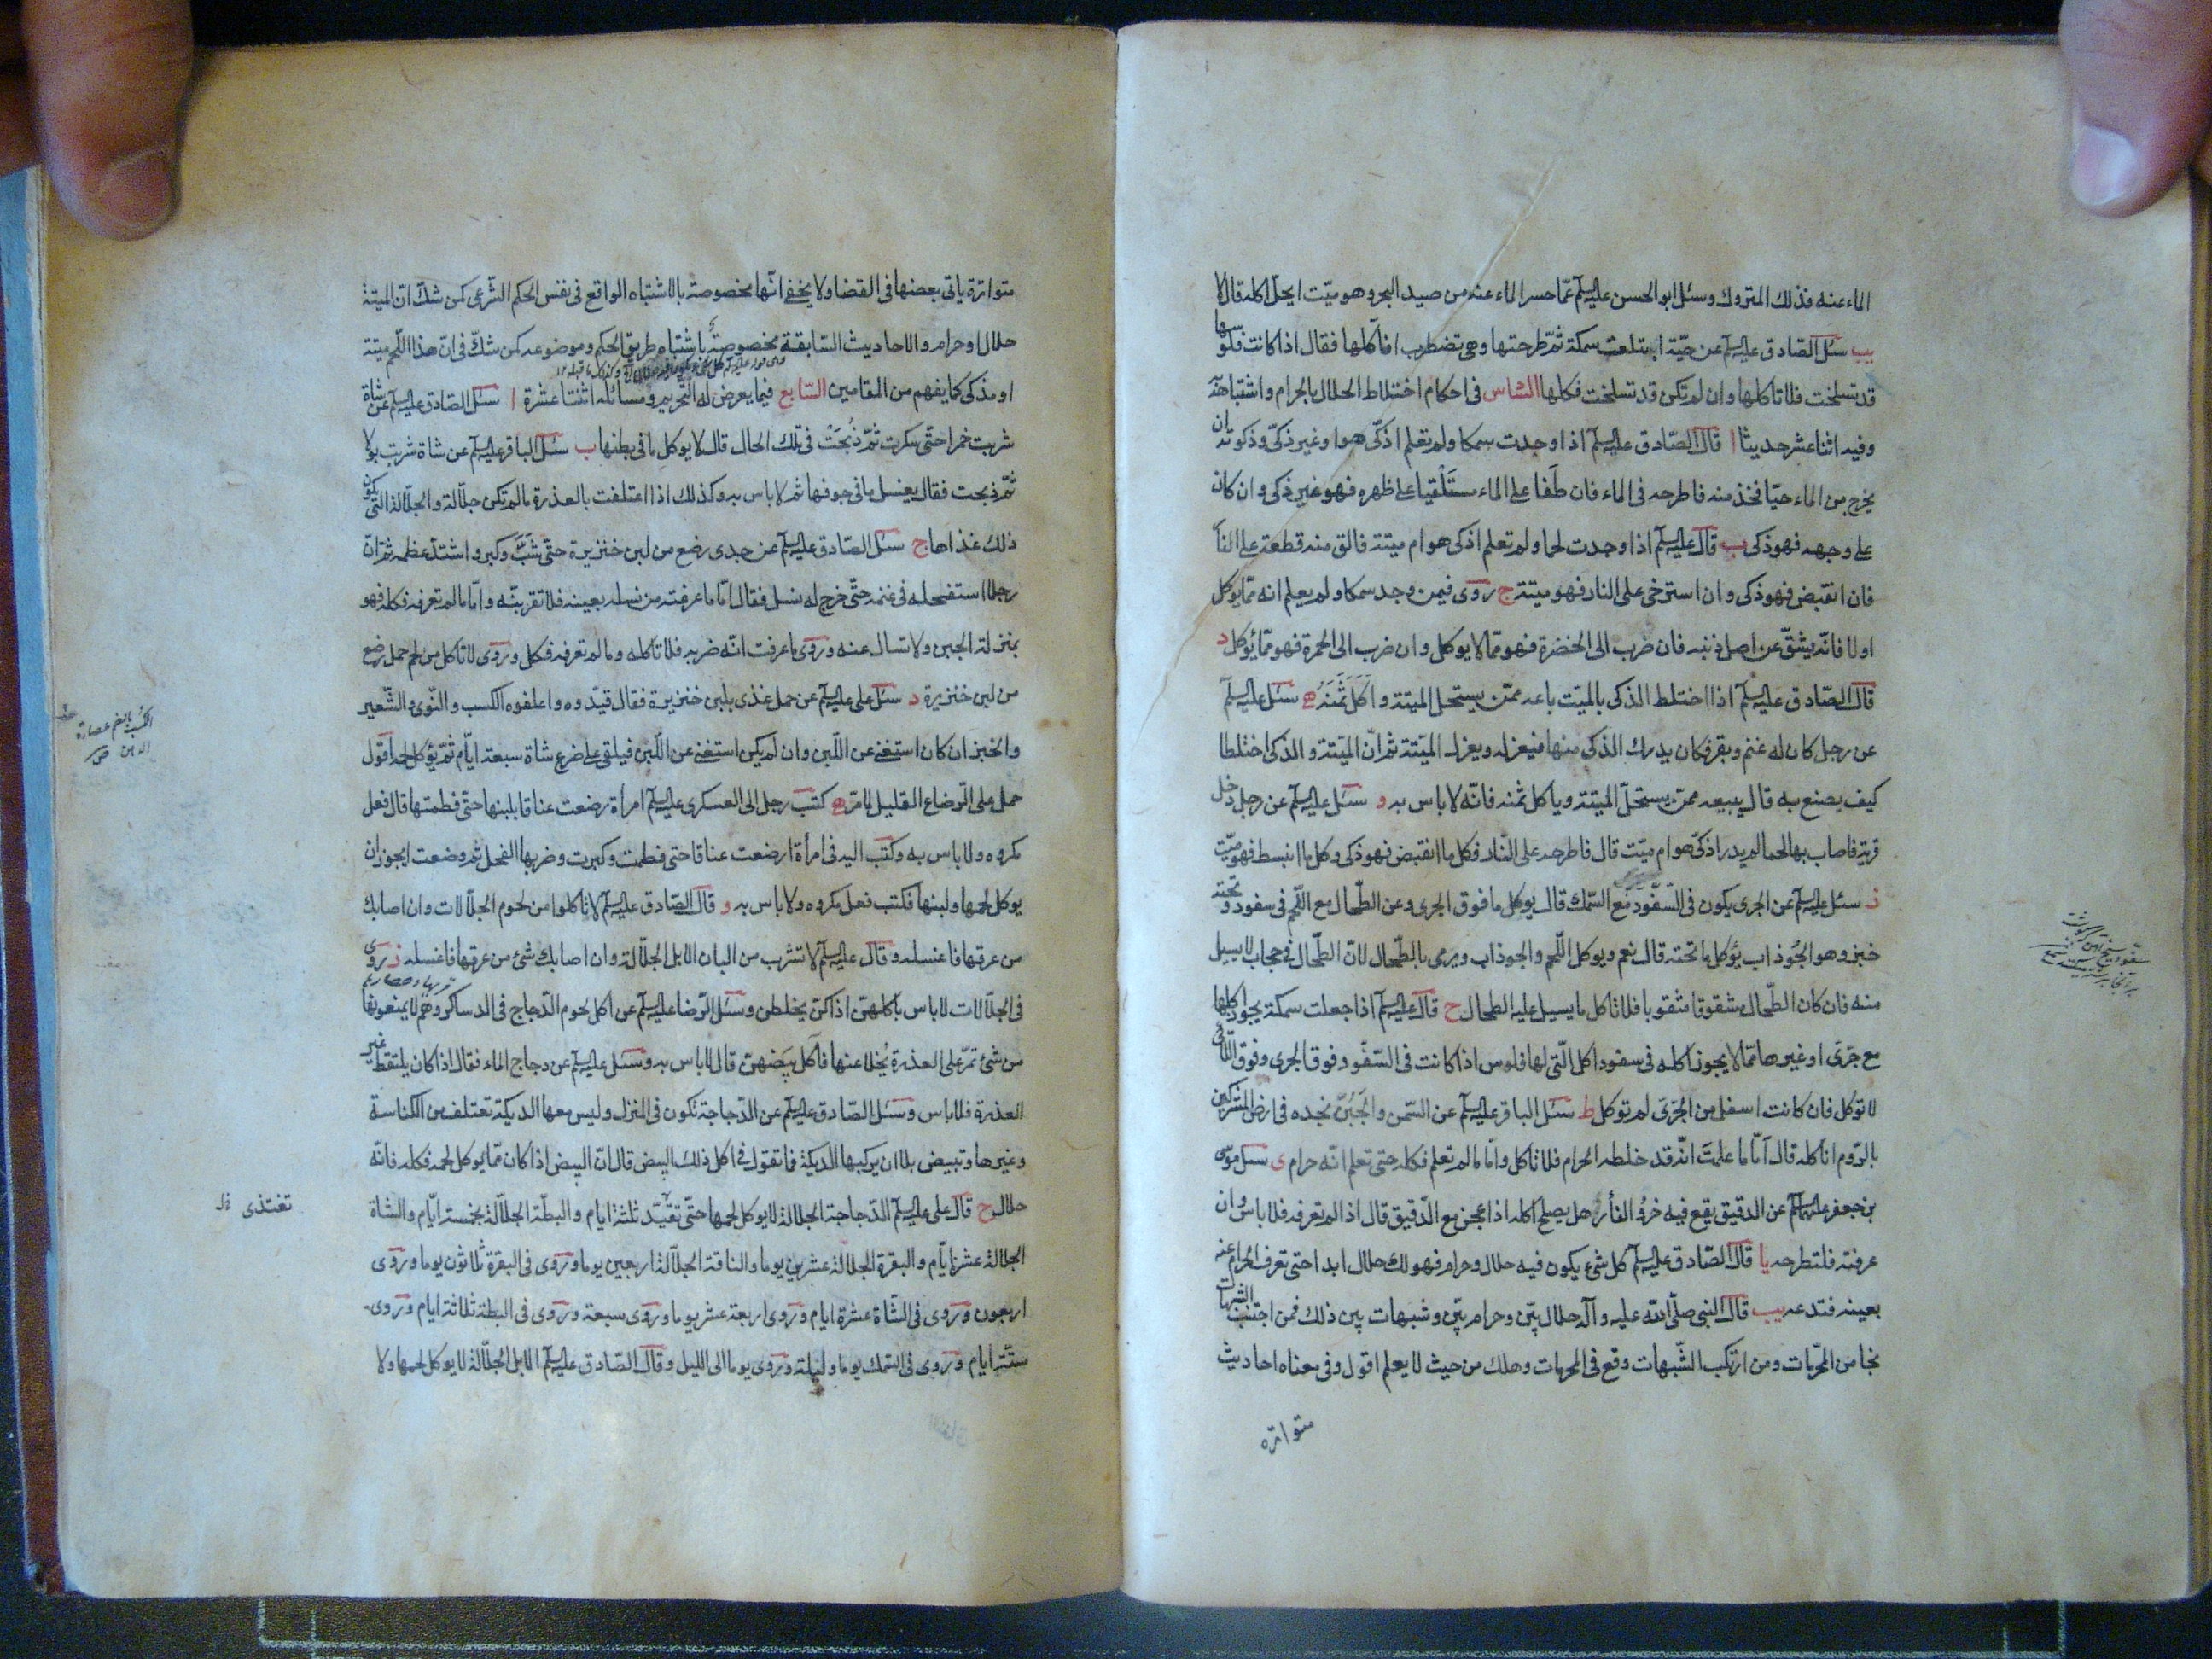 الماء عنه فذلك المتروك وسئل ابو الحسن عليه السلم عمّا حسر الماء عنه من صيد البحر وهو ميّت ايحلّ اكله قال لا
يب سئل الصّادق عليه السلم عن حيّة ابتلعت سمكة ثمّ طرحتها وهى تضطرب افآكلها فقال اذا كانت فلوسها
قد تسلخت فلا تاكلها وان لم تكن قد تسلخت فكلها السّادس فى احكام اختلاط الحلال بالحرام واشتباهه
وفيه اثنا عشر حديثا ا قال الصّادق عليه السلم اذا وجدت سمكا ولم تعلم اذكىّ هو او غير ذكىّ وذكوته ان
يخرج من الماء حيّا فخذ منه فاطرحه فى الماء فان طَفا على الماء مستَلْقيا على ظهره فهو غير ذكى وان كان
على وجهه فهو ذكى ب قال عليه السلم اذا وجدت لحما ولم تعلم اذكى هو ام ميتة فالق منه قطعة على النار
فان انقبض فهو ذكى وان استرخى على النار فهو ميتة ج روى فيمن وجد سمكا ولم يعلم انه ممّا يوكل
او لا فانّه يشقّ عن اصل ذنبه فان ضرب الى الخضرة فهو ممّا لا يوكل وان ضرب الى الحمرة فهو ممّا يُوكل د
قال الصّادق عليه السلم اذا اختلط الذكى بالميّت باعه ممّن يستحل الميتة واَكَلَ ثَمَنَهُ ه سئل عليه السلم
عن رجل كان له غنم وبقر فكان يدرك الذكى منها فيعزله ويعزل الميّتة ثم انّ الميّتة والذكى اختلطا
كيف يصنع به قال يبيعه ممن يستحلّ الميتة وياكل ثمنه فانّه لا باس به و سئل عليه السلم عن رجل دخل
قرية فاصاب بها لحما لم يدر اذكىّ هو ام ميّت قال فاطرحه على النّار فكل ما انقبض فهو ذكى وكل ما انبسط فهو ميّت
ز سئل عليه السلم عن الجرى يكون فى السَفّود مع السّمك قال يوكل ما فوق الجرى وعن الطّحال مع اللّحم فى سفود وتحته
خبز وهو الجُوذاب يؤكل ما تحته قال نعم ويوكل اللّحم والجوذاب ويرمى بالطّحال لانّ الطّحال فى حجاب لا يسيل
منه فان كان الطّحال مشقوقا مثقوبا فلا تاكل ما يسيل عليه الطحال ح قال عليه السلم اذا جعلت سمكة يجوز اكلها
مع جرّى او غيرها ممّا لا يجوز اكله فى سفود اكل الّتى لها فلوس اذا كانت فى السّفّود فوق الجرى وفوق اللّاتى
لا توكل فان كانت اسفل من الجرّى لم توكل ط سئل الباقر عليه السلم عن السّمن والجُبُنّ نجده فى ارض المشركين
بالرّوم اناكله قال امّا ما علمتَ انّه قد خلطه الحرام فلا تاكل وامّا ما لم تعلم فكله حتى تعلم انّه حرام ى سئل موسى
بن جعفر عليهما السلم عن الدقيق يقع فيه خرؤ الفأر هل يصلح اكله اذا عجن مع الدّقيق قال اذا لم تعرفه فلا باس وان
عرفته فلتطرحه يا قال الصّادق عليه السلم كل شئ يكون فيه حلال وحرام فهو لك حلال ابدا حتى تعرف الحرام منه
بعينه فتدعه يب قال النبى صلّى الله عليه وآله حلال بيّن وحرام بيّن وشبهات بين ذلك فمن اجتنب الشبهات
نجا من المحرّمات ومن ارتكب الشّبهات وقع فى المحرمات وهلك من حيث لا يعلم اقول وفى معناه احاديث
متواتره
متواترة ياتى بعضها فى القضا ولا يخفى انّها مخصوصة بالاشتباه الواقع فى نفس الحكم الشّرعى كمن شكّ انّ الميتة
حلال او حرام والاحاديث السّابقة مخصوصة باشتباه طريق الحكم وموضوعه كمن شكّ فى انّ هذا اللّحم ميتة
او مذكى كما يفهم من المقامين السّابع فيما يعرض له التّحريم ومسائله اثنتا عشرة ا سئل الصّادق عليه السلم عن شاة
شربت خمرا حتّى سكرت ثمّ ذُبحَتْ فى تلك الحال قال لا يوكل ما فى بطنها ب سئل الباقر عليه السلم عن شاة شربت بولا
ثمّ ذبحت فقال يغسل ما فى جوفها ثم لا باس به وكذلك اذا اعتلفت بالعذرة ما لم تكن جلّالة والجلّالة الّتى يكون
ذلك غذاها ج سئل الصّادق عليه السلم عن جدى رضع من لبن خنزيرة حتّى شَبَّ وكبر واشتدّ عظمه ثم انّ
رجلا استفحله فى غنمه حتّى خرج له نسل فقال امّا ما عرفته من نسله بعينه فلا تقربنّه وامّا ما لم تعرفه فكله فهو
بمنزلة الجبن ولا تسال عنه وروى ما عرفت انّه ضربه فلا تاكله وما لم تعرفه فكل وروى لا تاكل من لحم حمل رضع
من لبن خنزيرة د سئل على عليه السلم عن حمل غذى بلبن خنزيرة فقال قيّدوه واعلفوه الكسب والنّوى والشّعير
والخبز ان كان استغنى عن اللّبن وان لم يكن استغنى عن اللّبن فيلقى على ضرع شاة سبعة ايّام ثمّ يؤكل لحمه اقول
حمل على الرّضاع القليل لما مرّ ه كتب رجل الى العسكرى عليه السلم امرأة رضعت عناقا بلبنها حتّى فطمتها قال فعل
مكروه ولا باس به وكتب اليه فى امرأة ارضعت عناقا حتى فطمت وكبرت وضربها الفحل ثم وضعت ايجوز ان
يوكل لحمها ولبنها فكتب فعل مكروه ولا باس به و قال الصّادق عليه السلم لا تاكلوا من لحوم الجلّالات وان اصابك
من عرقها فاغسله وقال عليه السلم لا تشرب من البان الابل الجلّالة وان اصابك شئ من عرقها فاغسله ز روى
فى الجلّالات لا باس باكلهنّ اذا كنّ يخلطن وسئل الرّضا عليه السلم عن اكل لحوم الدّجاج فى الدساكر وهم لا يمنعونها
من شئ تمرّ على العذرة يُخلا عنها فاَكل بيضهنّ قال لا باس به وسئل عليه السلم عن دجاج الماء فقال اذا كان يلتقط غير
العذرة فلا باس وسئل الصّادق عليه السلم عن الدّجاجة تكون فى المنزل وليس معها الديكة تعتلف من الكناسة
وغيرها وتبيض بلا ان يركبها الديكة فما تقول فى اكل ذلك البيض قال انّ البيض اذا كان ممّا يوكل لحمه فكله فانّه
حلال ح قال على عليه السلم الدّجاجة الجلالة لا يوكل لحمها حتّى تقيّد ثلثة ايام والبطّة الجلّالة بخمسة ايّام والشاة
الجلالة عشرة ايّام والبقرة الجلالة عشرين يوما والناقة الجلّالة اربعين يوما وروى فى البقرة ثلاثون يوما وروى
اربعون وروى فى الشّاة عشرة ايام وروى اربعة عشر يوما وروى سبعة وروى فى البطة ثلاثة ايام وروى
ستّة ايام وروى فى السّمك يوما وليلة وروى يوما الى الليل وقال الصّادق عليه السلم الابل الجلّالة لا يوكل لحمها ولا
الكُسب بالضم عصارة
الدهن ص
تغتذى خل